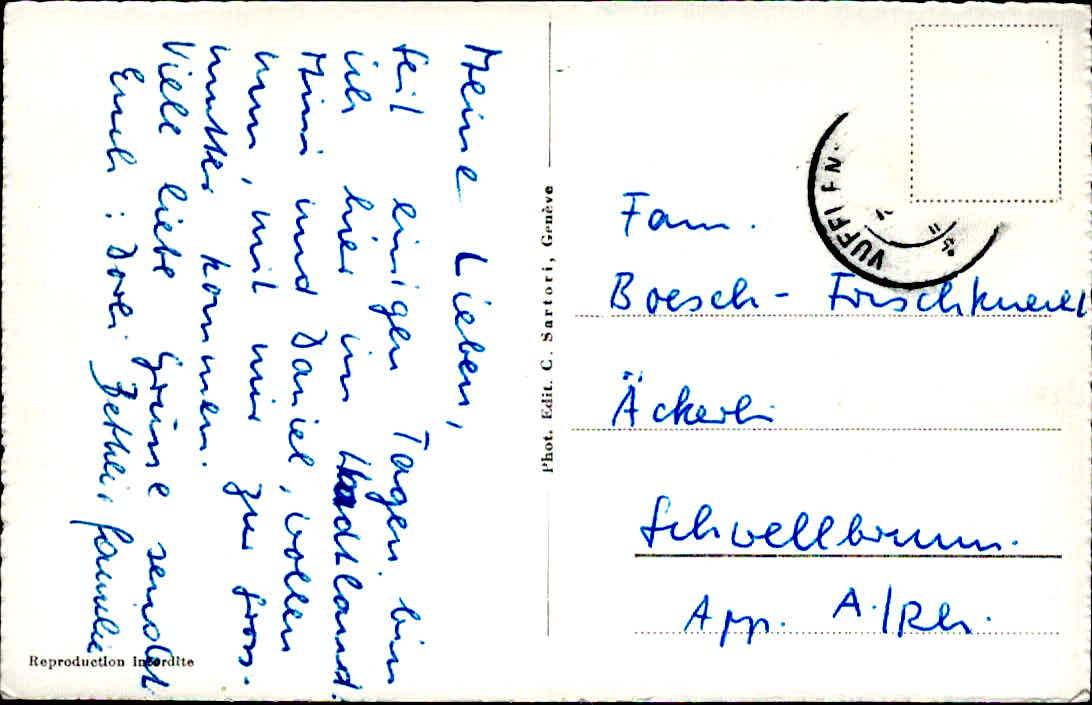 Meine Lieben,
seit einigen Tagen bin
ich hier im Wadtland.
Mimi und Daniel, wollen
nun, mit mir zur Gros-
mutter kommen.
Viele liebe Grüsse sendet
Euch: Dorli
familie
Phot. Edit. C. Sartori, Genève
Reproduction Interdite
VUFFLENS
Fam.
Boesch- Frischknecht
Äckerli
Schwellbrunn.
App. A./Rh.